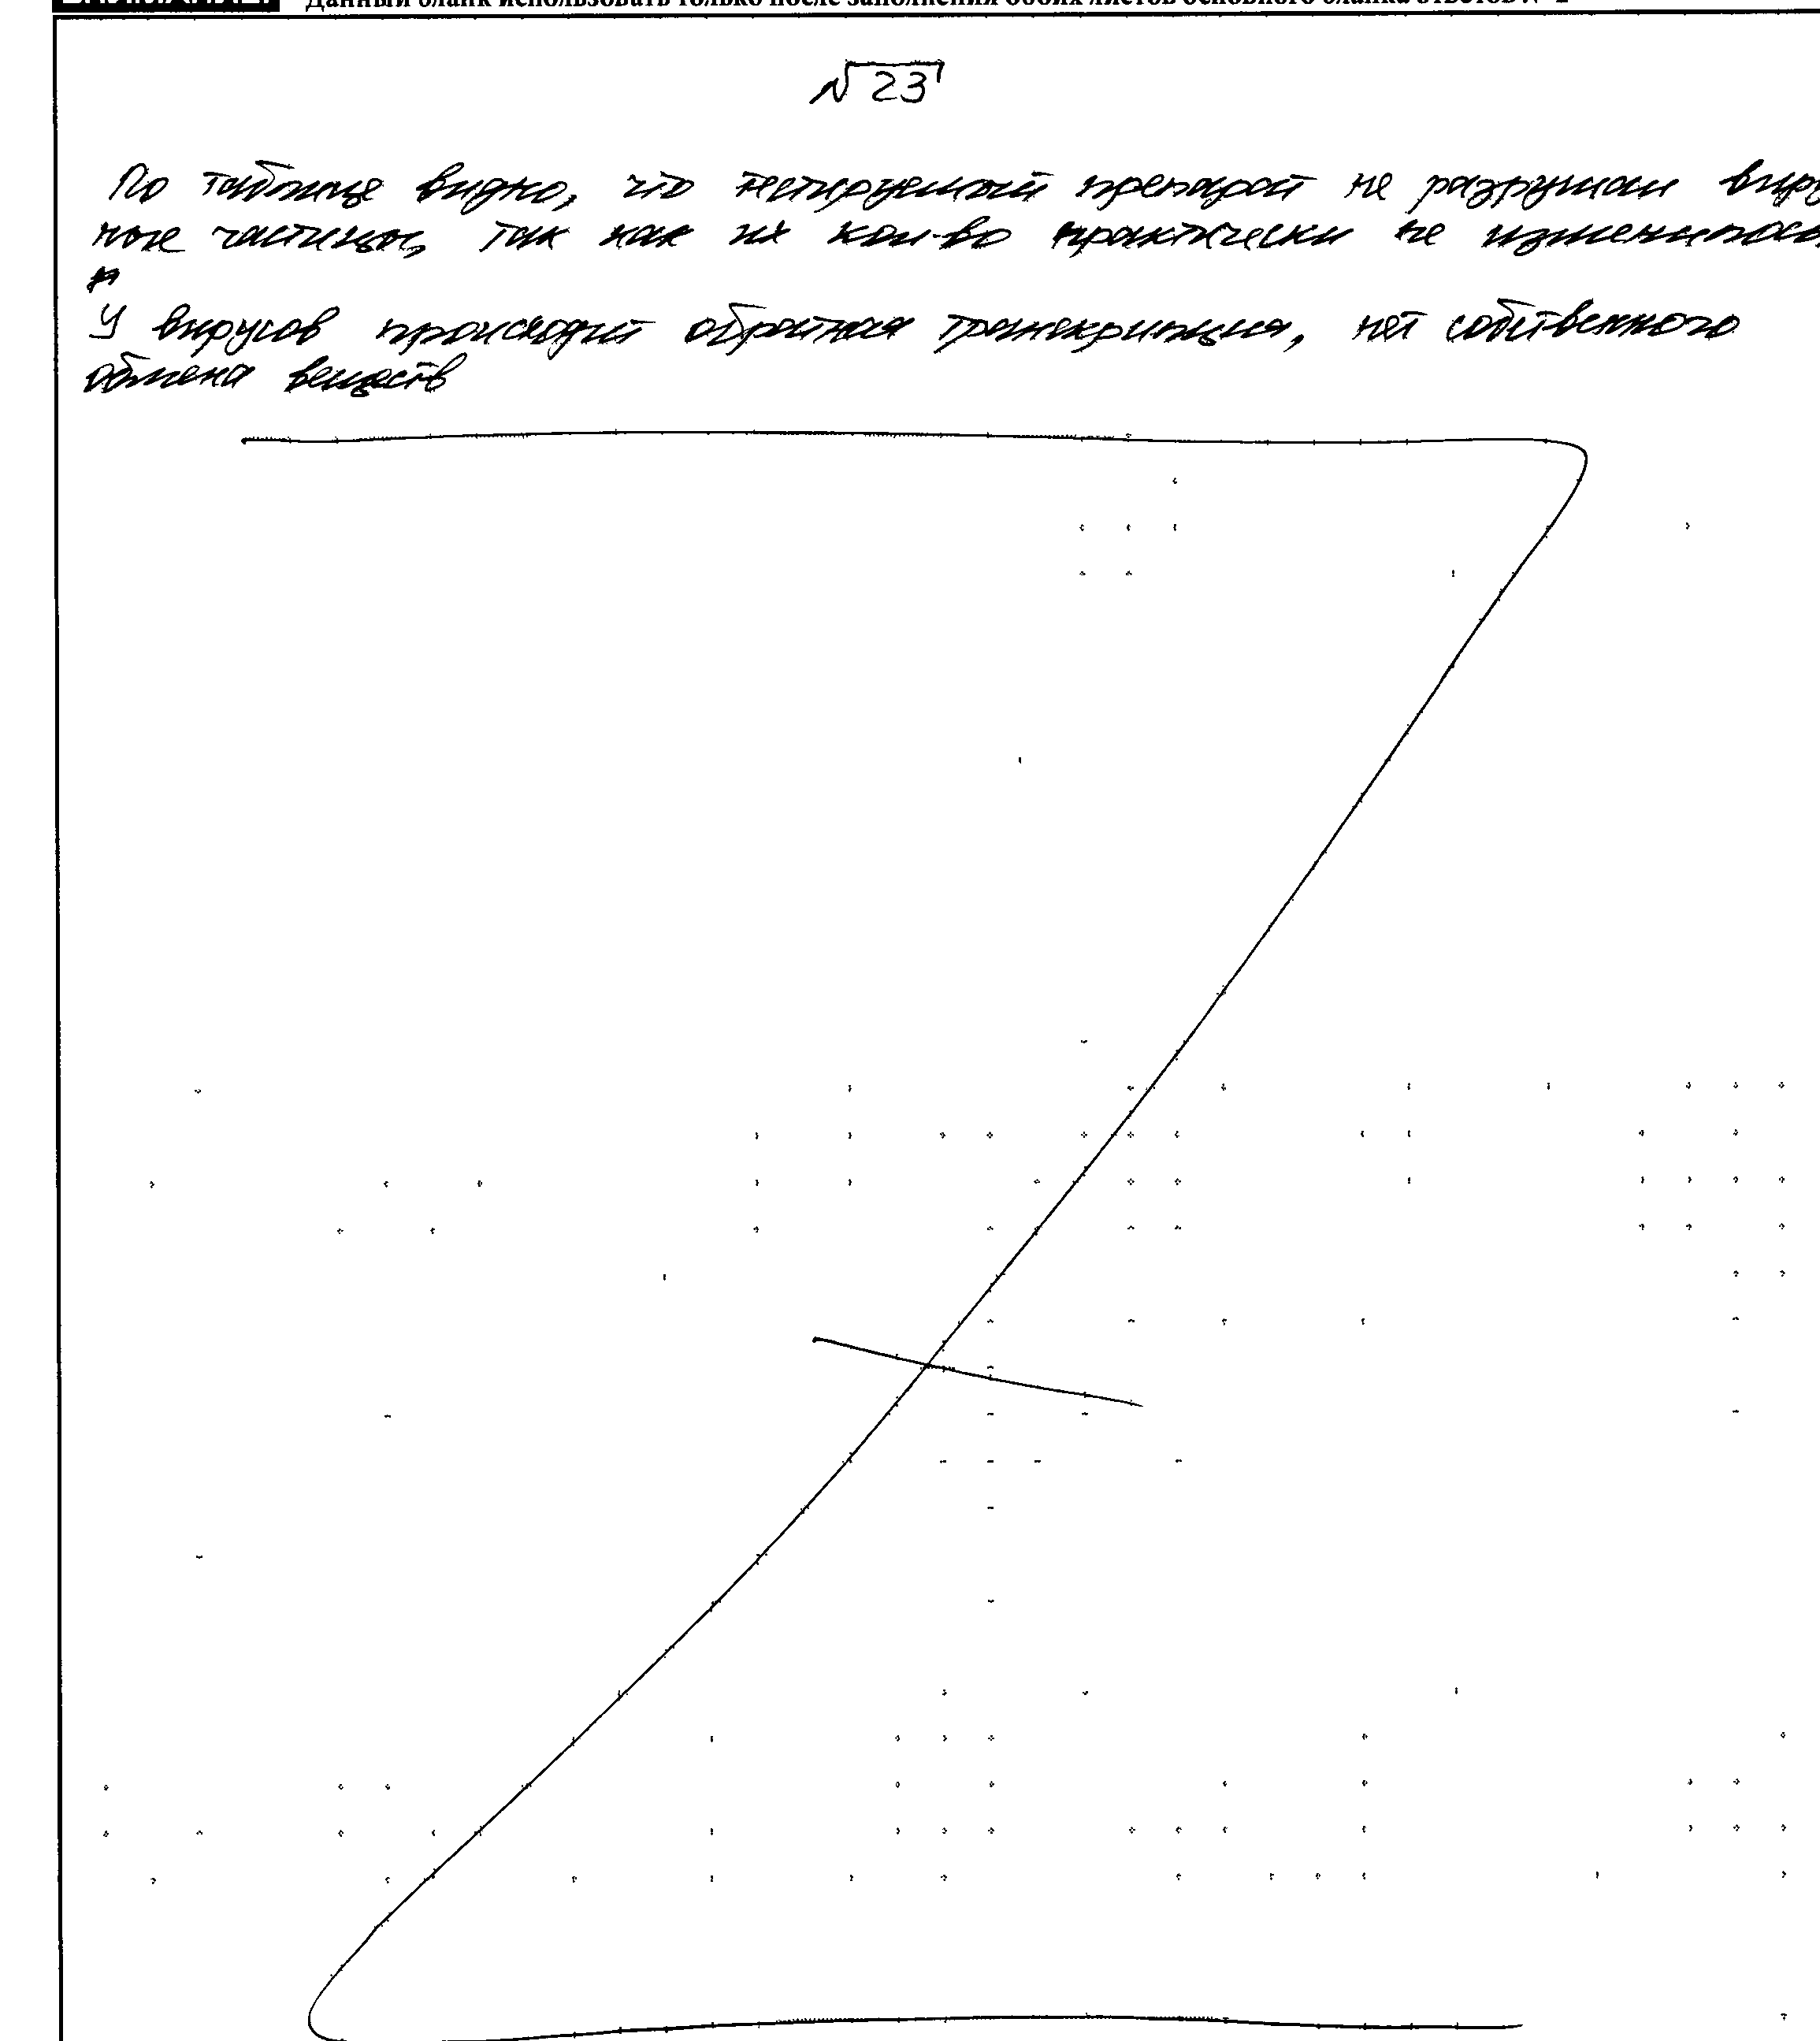 Данный бланк использовать только после заполнения обоих листов основного бланка ответов № 2
№ 23
По таблице видно, что тестируемый препарат не разрушал виру
ные частицы, так как их кол-во практически не изменилось
У вирусов происходит обратная транскрипция, нет собственного
обмена веществ